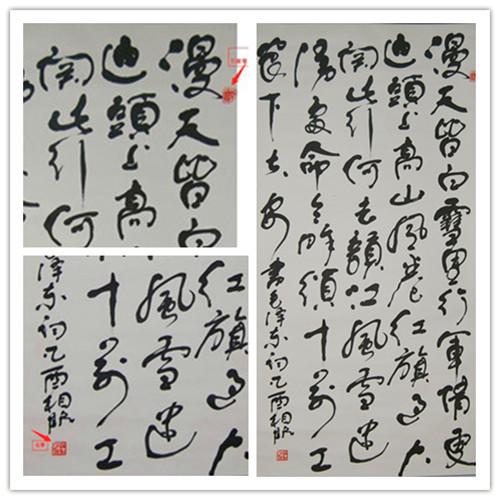 漫天皆白
迫頭上高
関此行何
红旗過大
風雪迷
十万工
泽东词乙酉
漫天皆白雪里行軍情更
迫頭上高山風卷红旗過大
関此行何去赣江風雪迷
漫处命令昨頒十万工
农下吉安
書毛泽东词乙酉